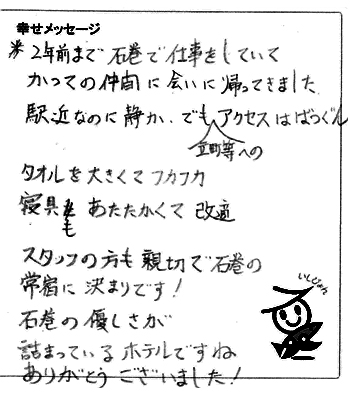 幸せメッセージ
※2年前まで石巻で仕事をしていて
かつての仲間に会いに帰ってきました
駅近なのに静か、でもアクセスはばつぐん
立町等への
タオルも大きくてフカフカ
寝具も あたたかくて 改適
スタッフの方も親切で石巻の
常宿に決まりです!
石巻の優しさが
詰まっているホテルですね
ありがとうございました!
いしぴょん